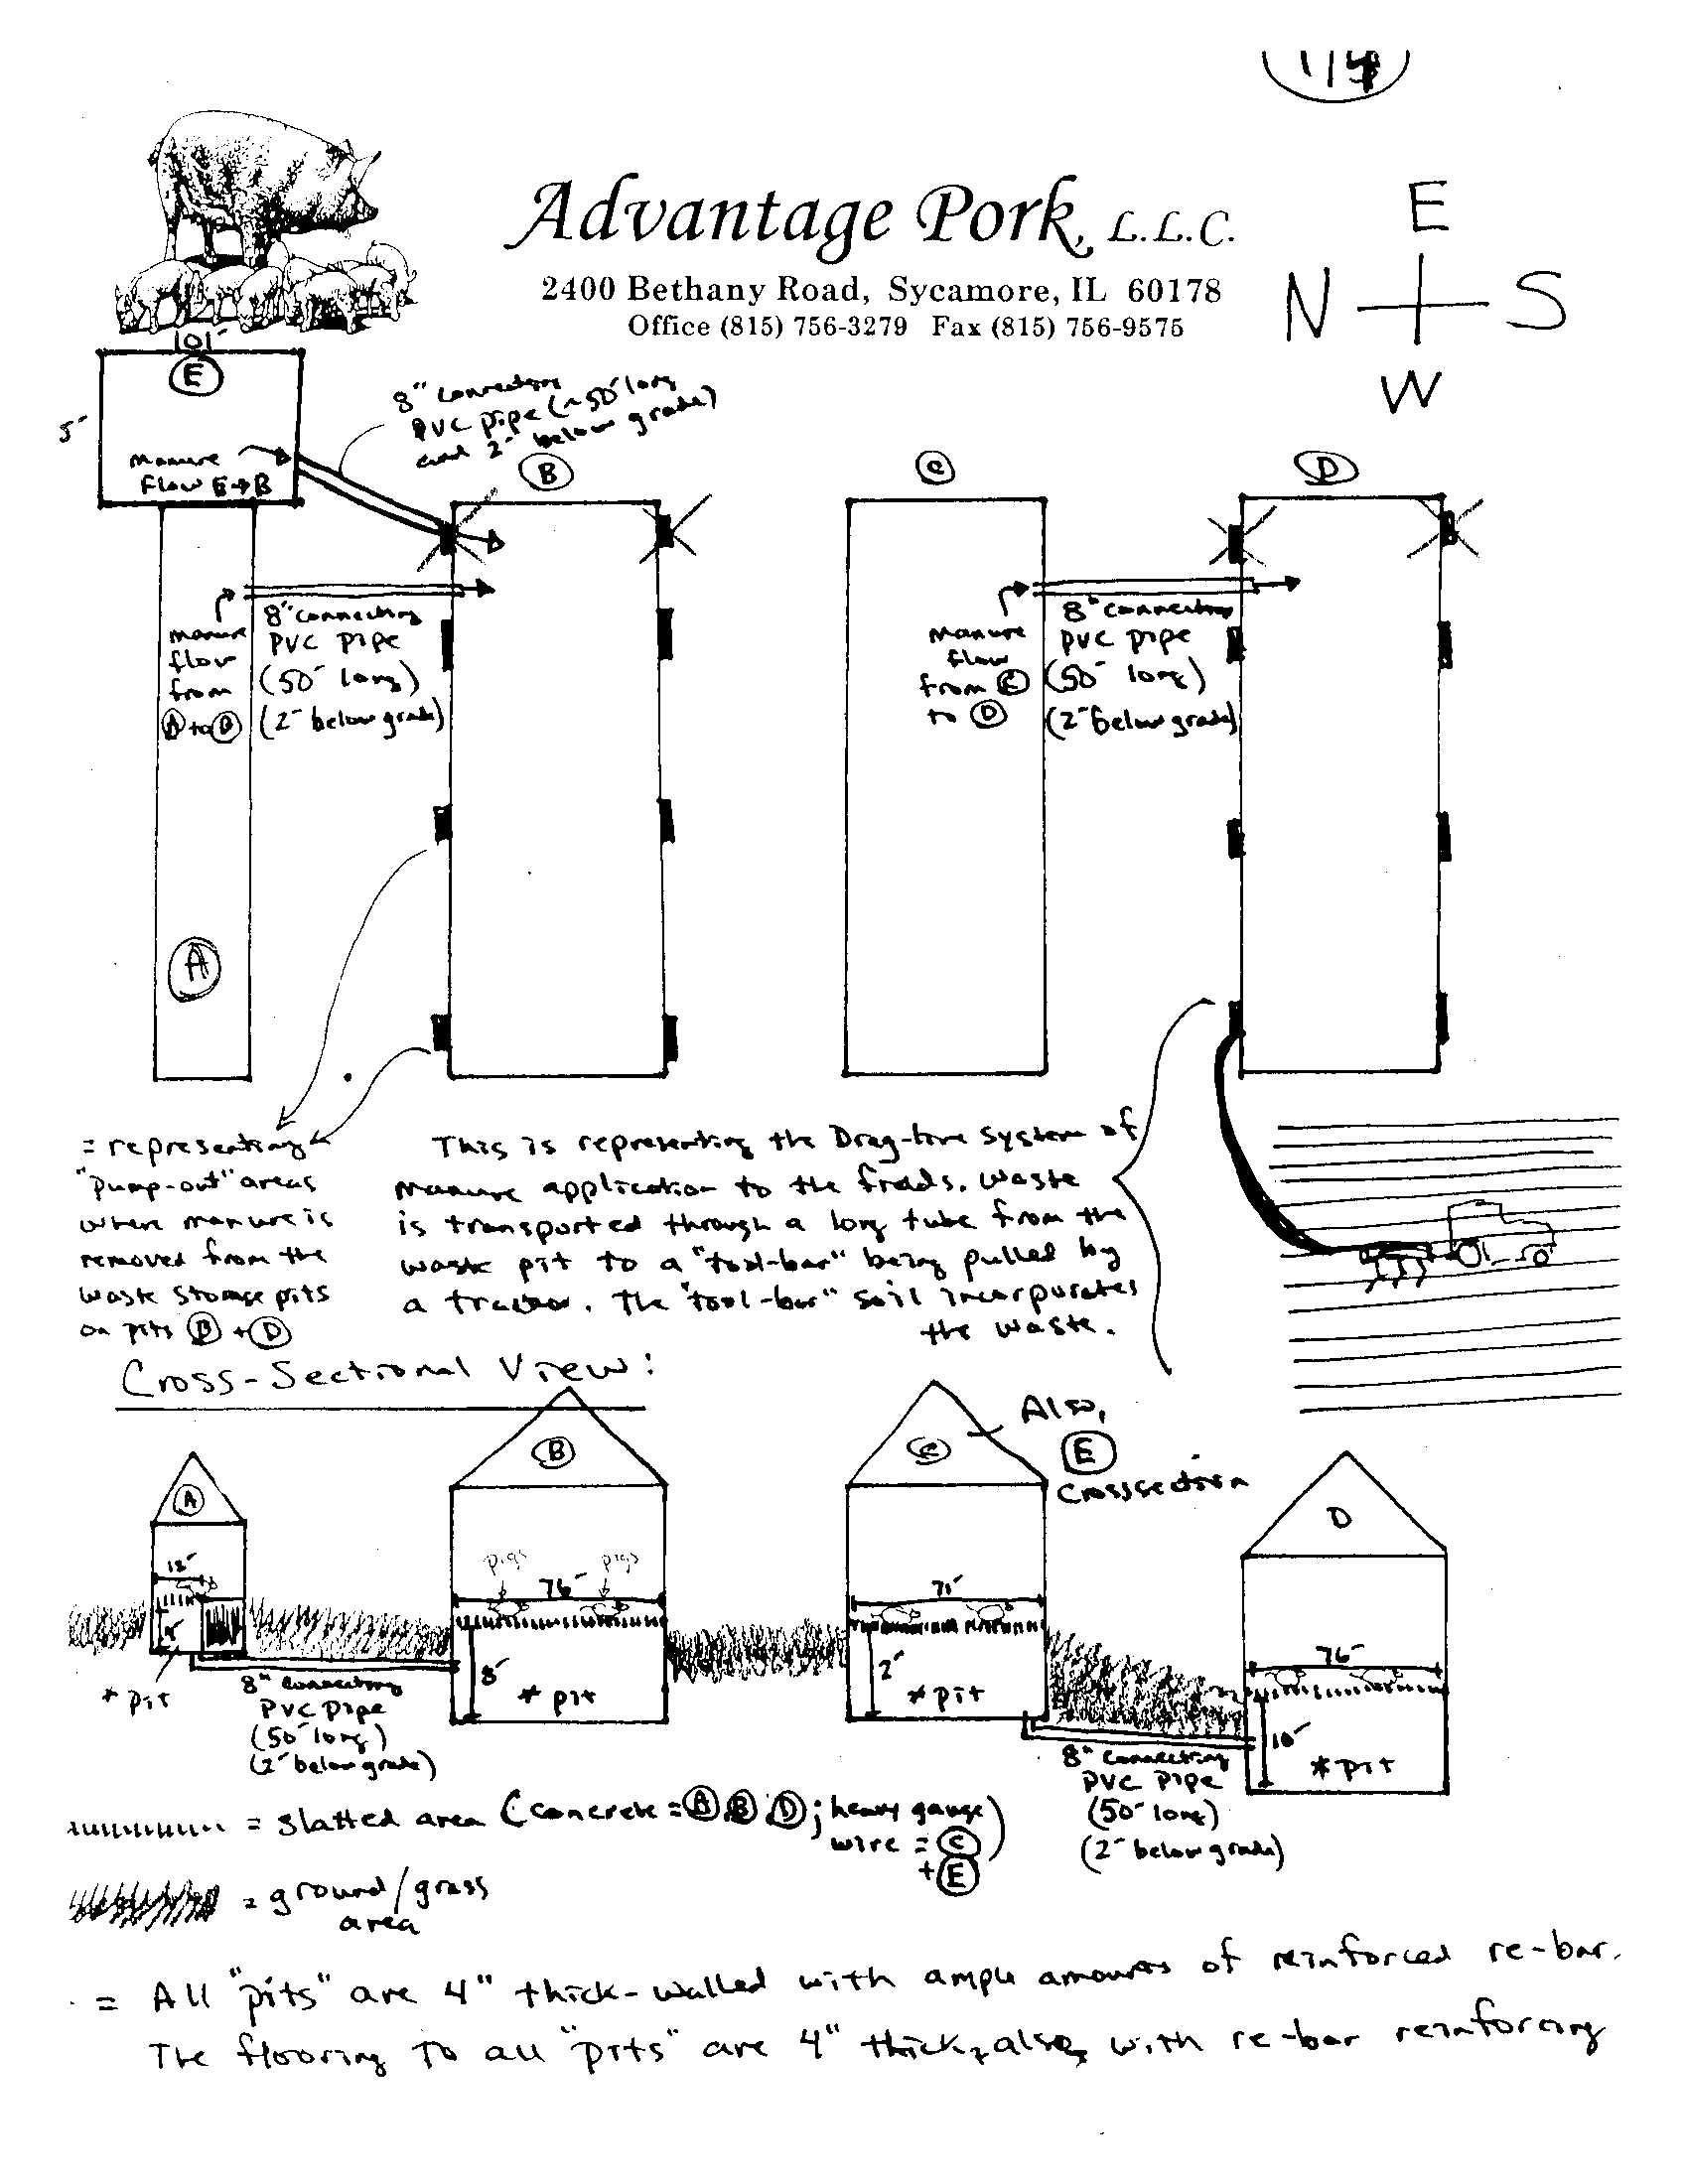 1/4
Advantage Pork, L.L.C.
2400 Bethany Road, Sycamore, IL 60178
Office (815) 756-3279 Fax (815) 756-9575
E
N S
W
101'
E
5'
manure
flow E→B
8" connecting
PVC pipe (~50' long
and 2' below grade)
B
C
D
manure
flow
from
A to B
8" connecting
PVC pipe
(50' long)
(2' below grade)
manure
flow
from C
to D
8" connecting
PVC pipe
(50' long)
(2' below grade)
A
= representing
"pump-out" areas
where manure is
removed from the
waste storage pits
on pits B + D
This is representing the Drag-line system of
manure application to the fields. Waste
is transported through a long tube from the
waste pit to a "tool-bar" being pulled by
a tractor. The "tool-bar" soil incorporates
the waste.
Cross-Sectional View:
A
B
C
Also,
E
Crosssection
D
pigs pigs
76'
8'
* pit
71'
2'
* pit
76'
10'
* pit
* pit
8" connecting
PVC pipe
(50' long)
(2' below grade)
8" connecting
PVC pipe
(50' long)
(2' below grade)
= slatted area (concrete = A, B, D; heavy gauge
wire = C
+ E)
= ground/grass
area
= All "pits" are 4" thick-walled with ample amounts of reinforced re-bar.
The flooring to all "pits" are 4" thick, also, with re-bar reinforcing